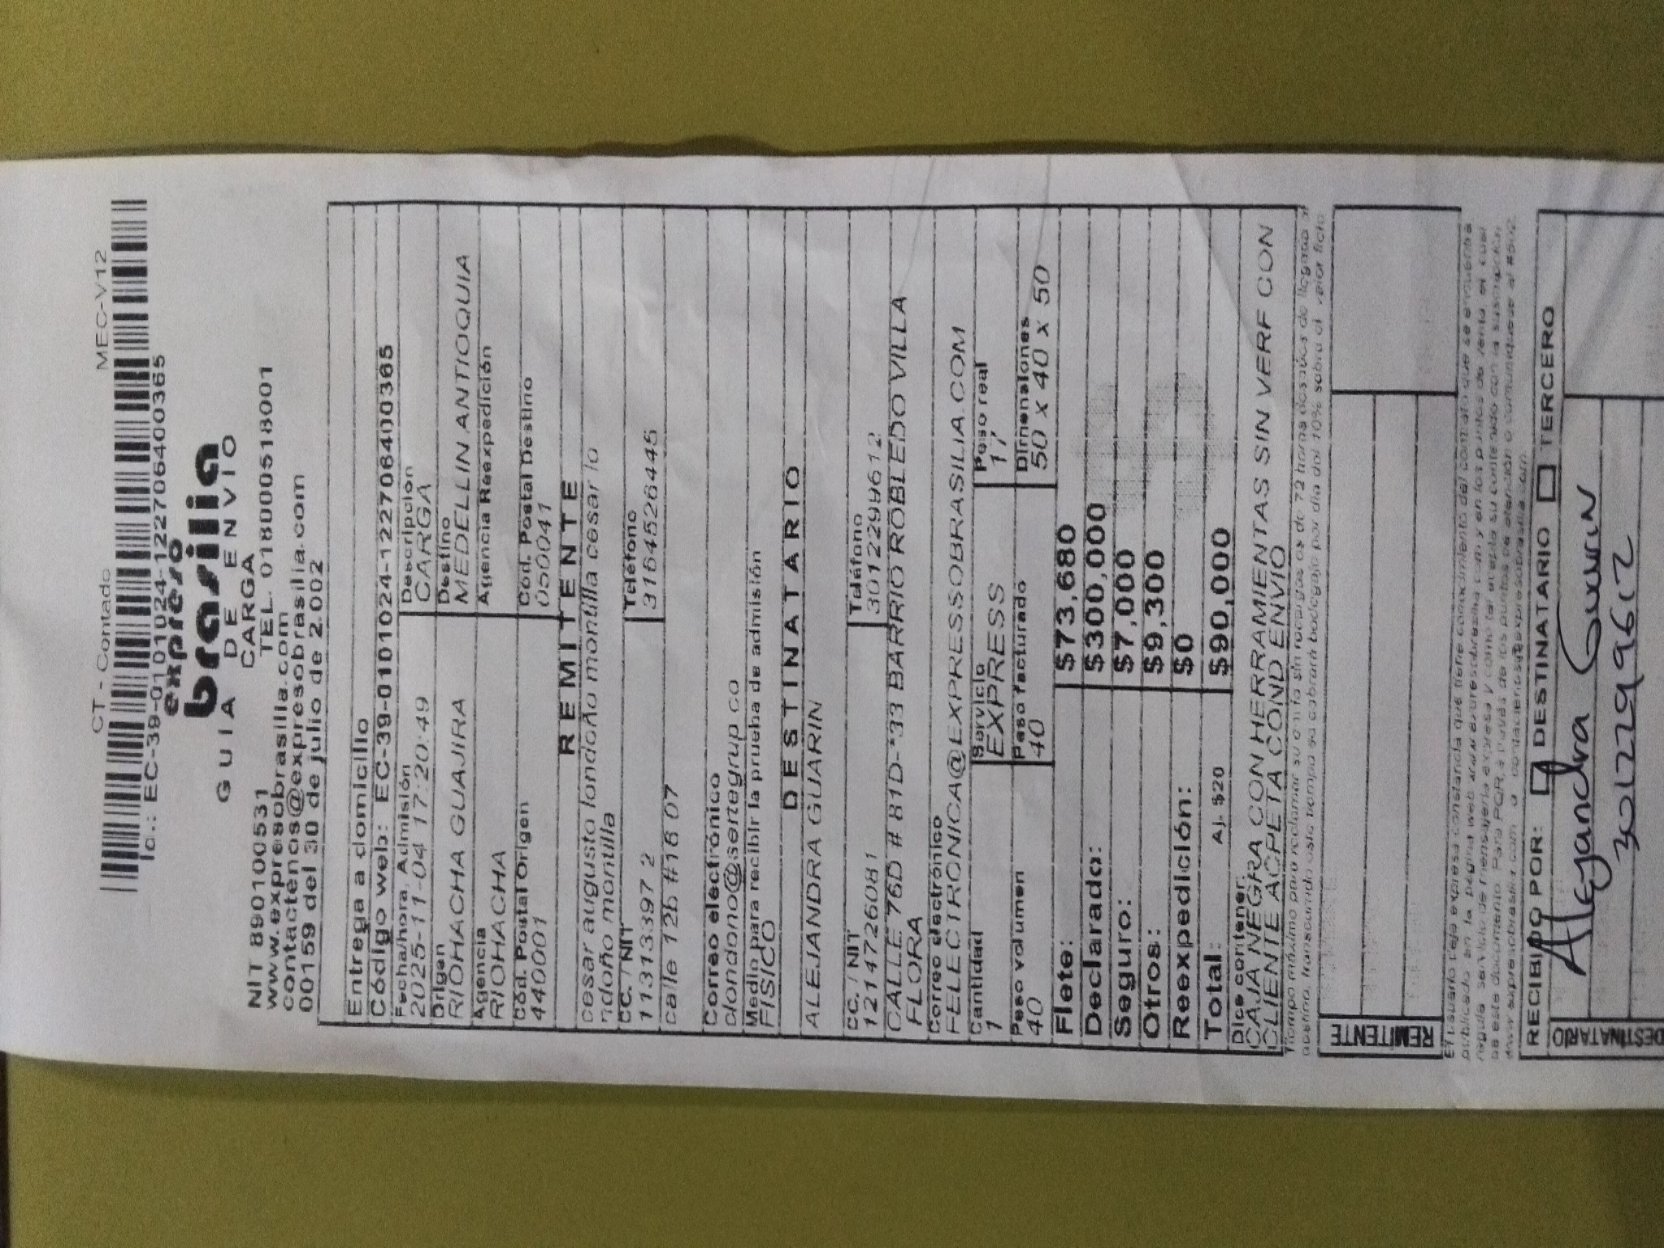 CT - Contado MEC-V12
Ic.: EC-39-0101024-1227064 00365
expreso
brasilia
GUIA DE ENVIO
CARGA
NIT 890100531 TEL. 018000051 8001
www.expresobrasilia.com
contactenos@expresobrasilia.com
00159 del 30 de julio de 2.002
Entrega a domicilio
Código web: EC-39-0101024-122706400365
Fecha/hora. Admisión Descripción
2025-11-04 17:20:49 CARGA
Origen Destino
RIOHACHA GUAJIRA MEDELLIN ANTIOQUIA
Agencia Agencia Reexpedición
RIOHACHA
Cód. Postal Origen Cód. Postal Destino
440001 050041
REMITENTE
cesar augusto londoño montilla cesar lo
ndoño montilla
CC. / NIT Teléfono
11313397 2 3164526445
calle 12b #16 07
Correo electrónico
clondono@sertegrup.co
Medio para recibir la prueba de admisión
FISICO
DESTINATARIO
ALEJANDRA GUARIN
CC. / NIT Teléfono
1214726081 3012299612
CALLE 76D # 81D-*33 BARRIO ROBLEDO VILLA
FLORA
Correo electrónico
FELECTRONICA@EXPRESSOBRASILIA.COM
Cantidad Servicio Peso real
1 EXPRESS 17
Peso volumen Peso facturado Dimensiones
40 40 50 x 40 x 50
Flete: $73,680
Declarado: $300,000
Seguro: $7,000
Otros: $9,300
Reexpedición: $0
Total: Aj. $20 $90,000
Dice contener:
CAJA NEGRA CON HERRAMIENTAS SIN VERF CON
CLIENTE ACPETA COND ENVIO
Tiempo máximo para reclamar su envío sin recargos es de 72 horas después de llegado a
destino, transcurrido este tiempo se cobrará bodegaje por día del 10% sobre el valor flete
REMITENTE
El usuario deja expresa constancia que tiene conocimiento del contrato que se encuentra
publicado en la página web www.expresobrasilia.com y en los puntos de venta el cual
regula servicio de mensajería expresa y como tal acepta su contenido con la suscripción
de este documento. Para PQR a través de los puntos de atención o comuníquese al #502
RECIBIDO POR: DESTINATARIO TERCERO
DESTINATARIO
Alejandra Guarin
3012299612